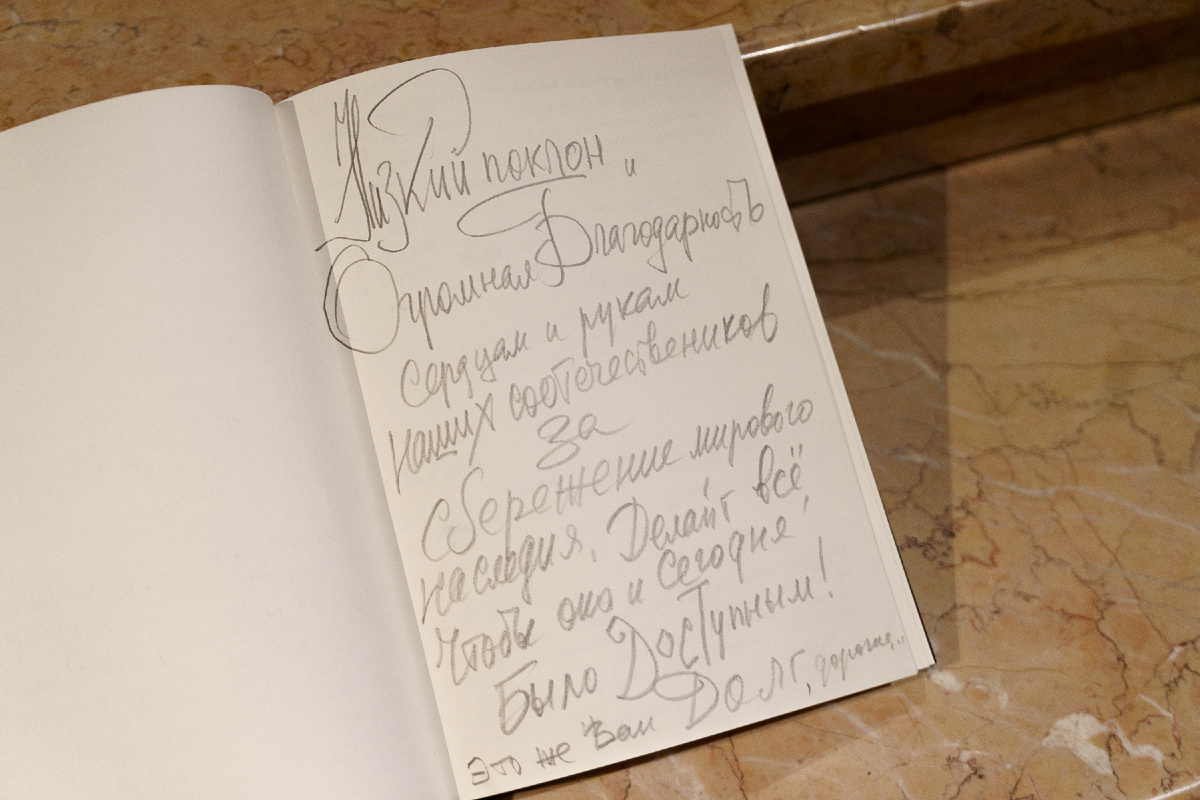 Низкий поклон и
Огромная Благодарность
Сердцам и рукам
наших соотечествеников
За
Сбережение мирового
наследия, Делайт всё,
Чтобы оно и сегодня
Было Доступным!
Это же Вам Долг, дорогия...